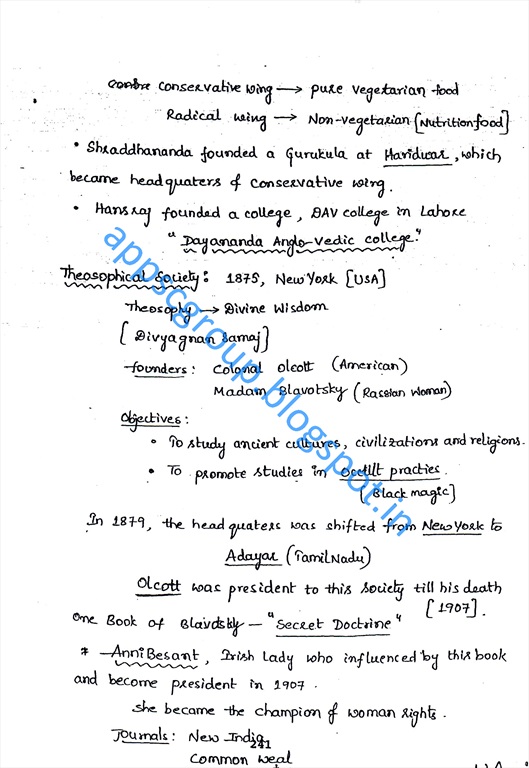 conservative wing → pure vegetarian food
Radical wing → Non-vegetarian [Nutrition food]
• Shraddhananda founded a Gurukula at Haridwar, which
became headquaters of conservative wing.
• Hansraj founded a college, DAV college in Lahore
"Dayananda Anglo-Vedic college."
Theosophical Society: 1875, New York [USA]
Theosophy → Divine Wisdom
[Divyagnan Samaj]
founders: Colonal Olcott (American)
Madam Blavotsky (Rassian Woman)
Objectives:
• To study ancient cultures, civilizations and religions.
• To promote studies in Occult practies.
[Black magic]
In 1879, the headquaters was shifted from New York to
Adayar (TamilNadu)
Olcott was president to this society till his death
[1907].
One Book of Blavdsky - "Secret Doctrine"
* Anni Besant, Irish Lady who influenced by this book
and become president in 1907.
she became the champion of woman rights.
Journals: New India
241
Common weal
appscgroup.blogspot.in